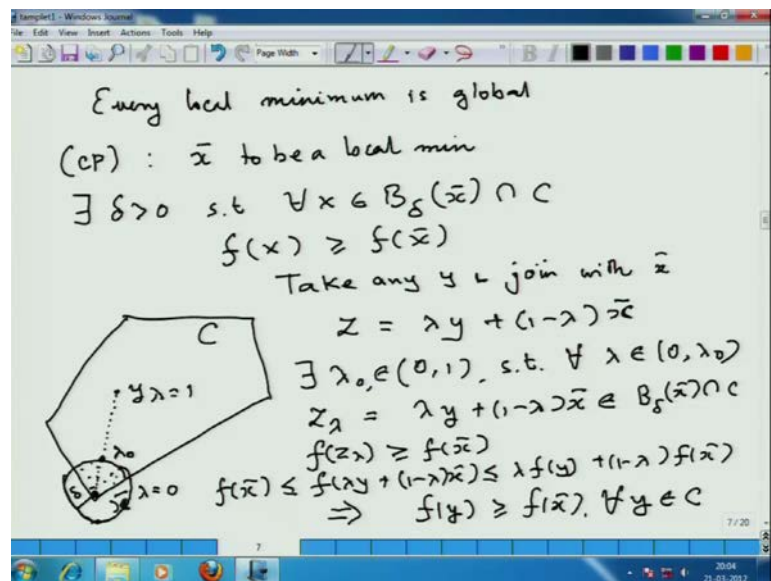 tamplet1 - Windows Journal
File Edit View Insert Actions Tools Help
Page Width
Every local minimum is global
(CP) : x̄ to be a local min
∃ δ>0 s.t ∀ x ∈ B_δ(x̄) ∩ C
f(x) ≥ f(x̄)
Take any y & join with x̄
z = λy + (1-λ)x̄
∃ λ₀ ∈ (0,1), s.t. ∀ λ ∈ (0,λ₀)
z_λ = λy + (1-λ)x̄ ∈ B_δ(x̄) ∩ C
f(z_λ) ≥ f(x̄)
f(x̄) ≤ f(λy + (1-λ)x̄) ≤ λf(y) + (1-λ)f(x̄)
⇒ f(y) ≥ f(x̄), ∀ y ∈ C
C
y λ=1
λ₀
δ x̄ λ=0
7/20
7
20:04
21-03-2012